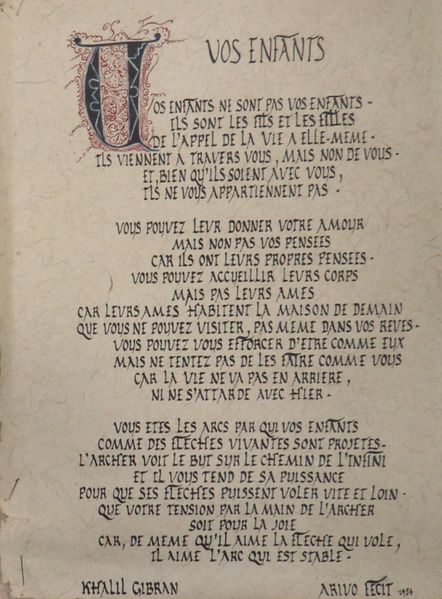 VOS ENFANTS
VOS ENFANTS NE SONT PAS VOS ENFANTS -
ILS SONT LES FILS ET LES FILLES
DE L'APPEL DE LA VIE A ELLE-MEME -
ILS VIENNENT A TRAVERS VOUS, MAIS NON DE VOUS -
ET, BIEN QU'ILS SOIENT AVEC VOUS,
ILS NE VOUS APPARTIENNENT PAS -
VOUS POUVEZ LEUR DONNER VOTRE AMOUR
MAIS NON PAS VOS PENSEES
CAR ILS ONT LEURS PROPRES PENSEES -
VOUS POUVEZ ACCUEILLIR LEURS CORPS
MAIS PAS LEURS AMES
CAR LEURS AMES HABITENT LA MAISON DE DEMAIN
QUE VOUS NE POUVEZ VISITER, PAS MEME DANS VOS REVES -
VOUS POUVEZ VOUS EFFORCER D'ETRE COMME EUX
MAIS NE TENTEZ PAS DE LES FAIRE COMME VOUS
CAR LA VIE NE VA PAS EN ARRIERE,
NI NE S'ATTARDE AVEC HIER -
VOUS ETES LES ARCS PAR QUI VOS ENFANTS
COMME DES FLECHES VIVANTES SONT PROJETES -
L'ARCHER VOIT LE BUT SUR LE CHEMIN DE L'INFINI
ET IL VOUS TEND DE SA PUISSANCE
POUR QUE SES FLECHES PUISSENT VOLER VITE ET LOIN -
QUE VOTRE TENSION PAR LA MAIN DE L'ARCHER
SOIT POUR LA JOIE
CAR, DE MEME QU'IL AIME LA FLECHE QUI VOLE,
IL AIME L'ARC QUI EST STABLE -
KHALIL GIBRAN ARIVO FECIT 1984